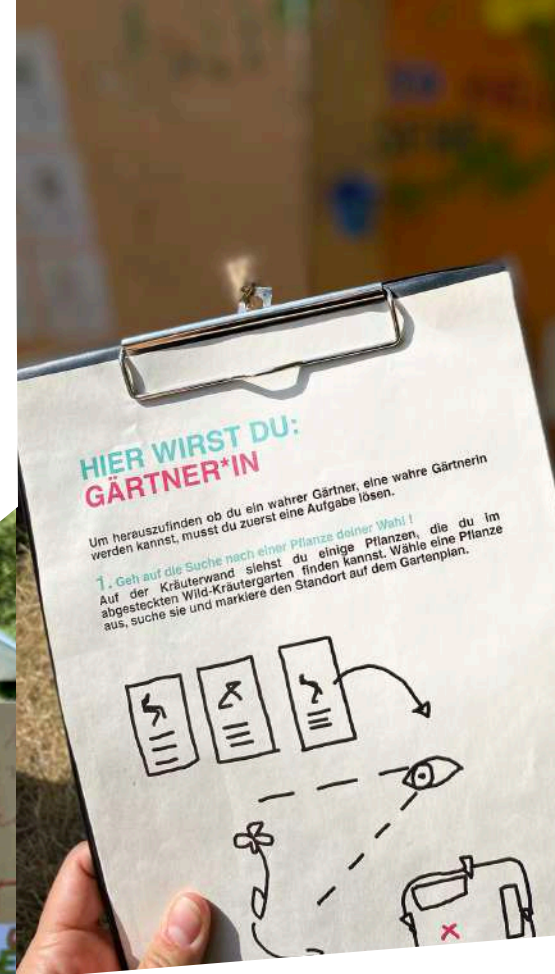 HIER WIRST DU:
GÄRTNER*IN
Um herauszufinden ob du ein wahrer Gärtner, eine wahre Gärtnerin
werden kannst, musst du zuerst eine Aufgabe lösen.
1. Geh auf die Suche nach einer Pflanze deiner Wahl !
Auf der Kräuterwand siehst du einige Pflanzen, die du im
abgesteckten Wild-Kräutergarten finden kannst. Wähle eine Pflanze
aus, suche sie und markiere den Standort auf dem Gartenplan.